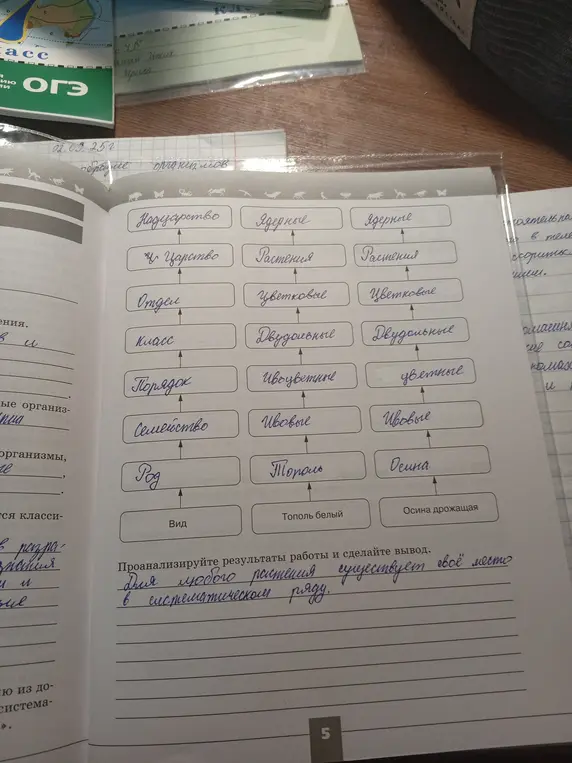 асс
ОГЭ
02.09.25г
организмов
Надцарство
Ядерные
Ядерные
Царство
Растения
Растения
Отдел
Цветковые
Цветковые
Класс
Двудольные
Двудольные
Порядок
Ивоцветные
цветные
Семейство
Ивовые
Ивовые
Род
Тополь
Осина
Вид
Тополь белый
Осина дрожащая
Проанализируйте результаты работы и сделайте вывод.
Для любого растения существует своё место
в систематическом ряду.
5
ения.
ые организ-
организмы,
тся класси-
ию из до-
система-
».